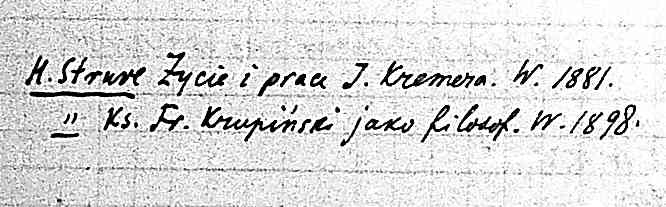 H. Struve Życie i prace J. Kremera. W. 1881.
" Ks. Fr. Krupiński jako filozof. W. 1898.